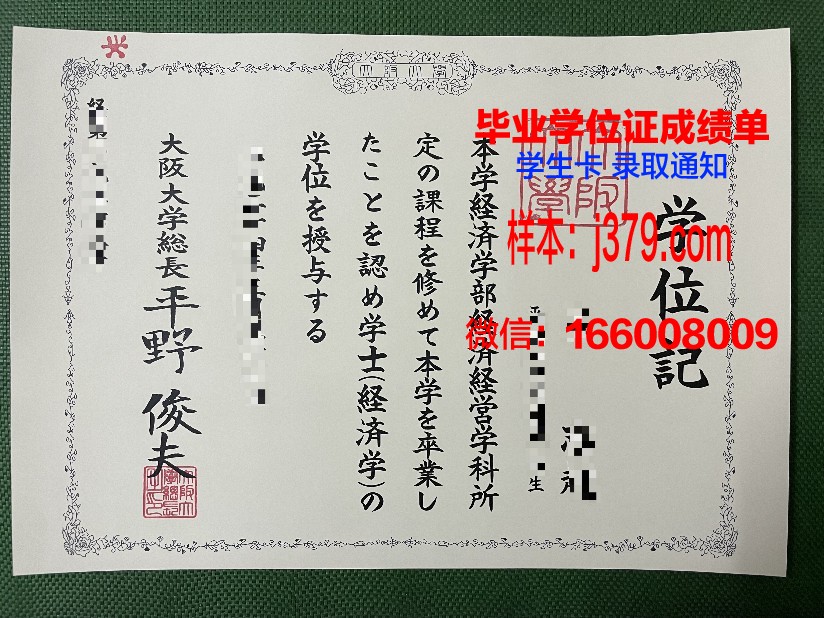 毕业学位证成绩单
学生卡 录取通知
样本：j379.com
微信：166008009
学位記
生
本学経済学部経済経営学科所
定の課程を修めて本学を卒業し
たことを認め学士(経済学)の
学位を授与する
大阪大学総長 平野俊夫